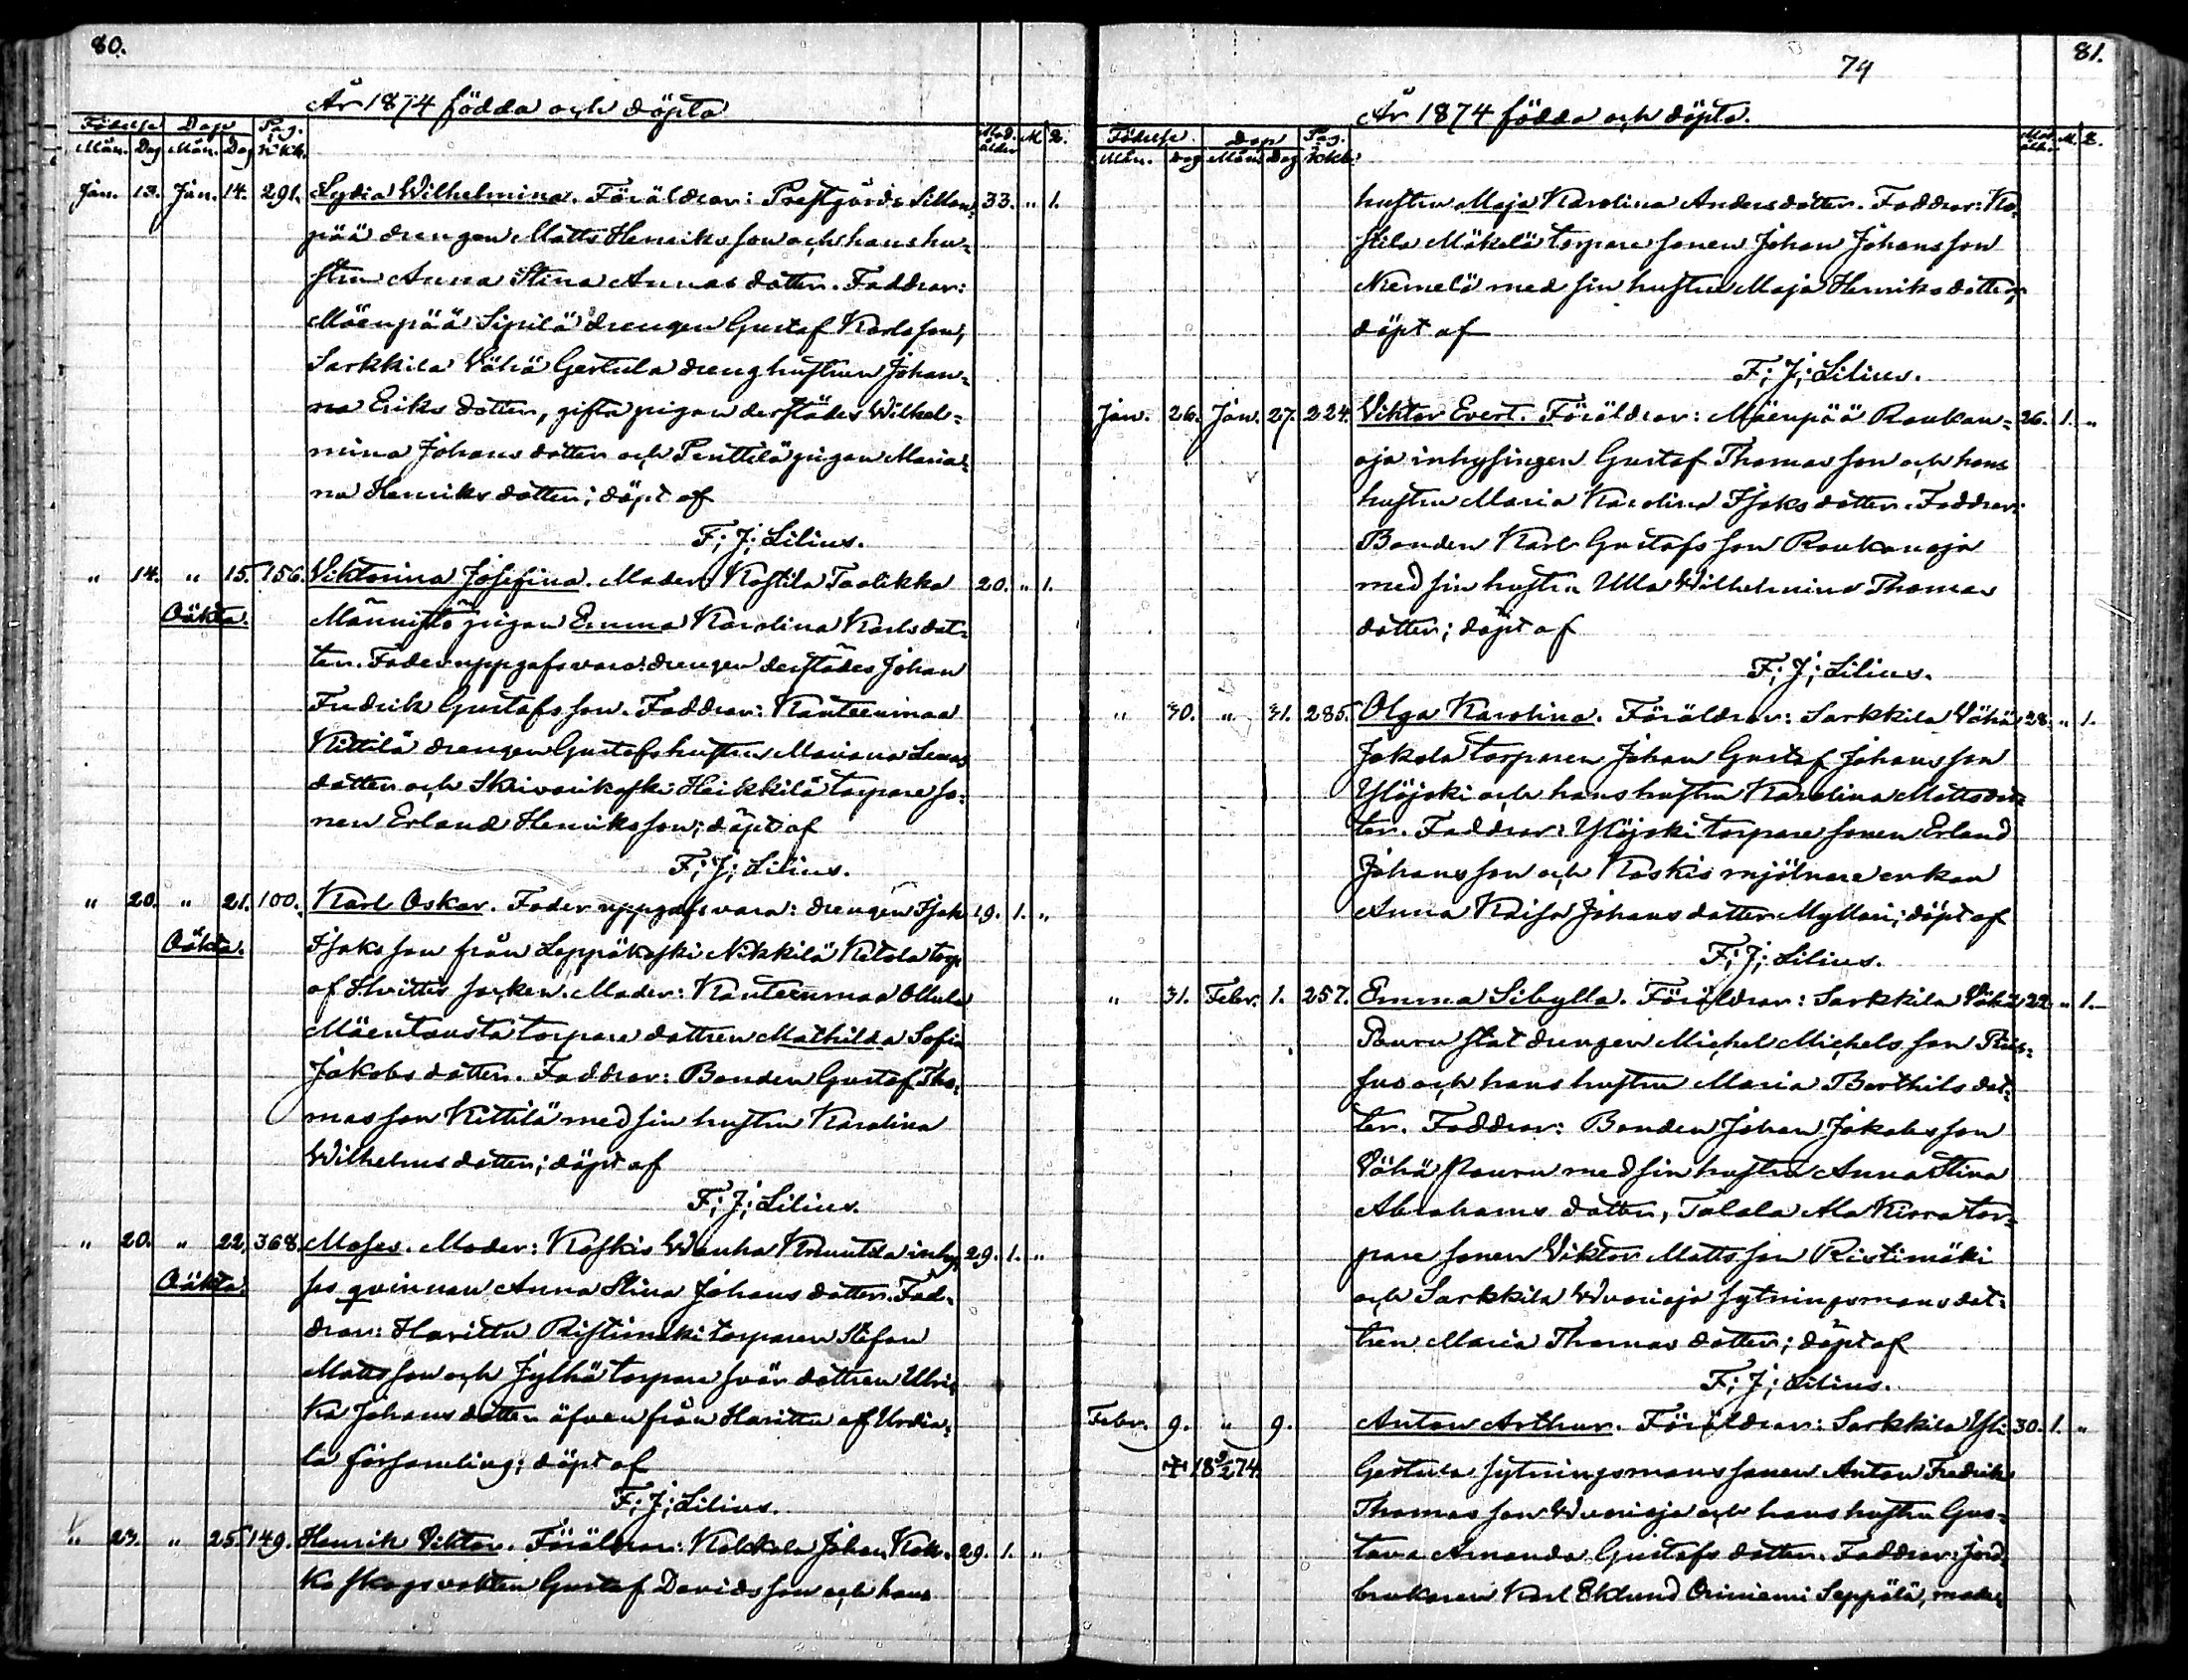 80.
År 1874 födda och döpta
Födelse Dop Pag. i kkb. Mod. ålder M. Q.
Mån. Dag Mån. Dag
Jan. 13. Jan. 14. 291. Lydia Wilhelmina. Föräldrar: Prestgårds Sillan= 33. " 1.
pää drengen Matts Henriksson och hans hu=
stru Anna Stina Annasdotter. Faddrar:
Mäenpää Sipilä drengen Gustaf Karlsson,
Sarkkila Vähä Gertula drenghustrun Johan=
na Eriksdotter, gifta pigan derstädes Wilhel=
mina Johansdotter och Penttilä pigan Maria=
na Henriksdotter; döpt af
F; J; Lilius.
" 14. " 15. 156. Viktorina Josefina. Moder: Kostila Taalikka 20. " 1.
Oäkta. Männistö pigan Emma Karolina Karlsdot=
ter. Fader uppgafs vara: drengen derstädes Johan
Fredrik Gustafsson. Faddrar: Kanteenmaa
Kittilä drengen Gustafs hustru Mariana Lenas
dotter och Skrivarikoski Heikkilä torpareso=
nen Erland Henriksson; döpt af
F; J; Lilius.
" 20. " 21. 100. Karl Oskar. Fader uppgafs vara: drengen Isak 19. 1. "
Oäkta. Isaksson från Leppäkoski Nikkilä Ketola torp
af Hvittis socken. Moder: Kanteenmaa Ollula
Mäentausta torpare dottren Mathilda Sofia
Jakobsdotter. Faddrar: Bonden Gustaf Tho=
masson Kittilä med sin hustru Karolina
Wilhelmsdotter; döpt af
F; J; Lilius.
" 20. " 22. 368. Moses. Moder: Koskis Wanha Knuutila inhy= 29. 1. "
Oäkta. ses qvinnan Anna Stina Johansdotter. Fad=
drar: Haritta Ristimäki torparen Stefan
Mattsson och Jylhä torpare svär dottren Ulri=
ka Johansdotter äfven från Haritta af Urdia=
la församling; döpt af
F; J; Lilius.
" 23. " 25. 149. Henrik Viktor. Föräldrar: Kokkola Johan Kok= 29. 1. "
ko skogsvakten Gustaf Davidsson och hans
79 81.
År 1874 födda och döpta.
Födelse. Dop Pag. i kkb. Mod. ålder M. Q.
Mån. Dag Mån. Dag
hustru Maja Karolina Andersdotter. Faddrar: Ko=
stila Mäkelä torpare sonen Johan Johansson
Niemelä med sin hustru Maja Henriksdotter;
döpt af
F; J; Lilius.
Jan. 26. Jan. 27. 224. Viktor Evert. Föräldrar: Mäenpää Raukan= 26. 1. "
oja inhysingen Gustaf Thomasson och hans
hustru Maria Karolina Isaksdotter. Faddrar:
Bonden Karl Gustafsson Raukanoja
med sin hustru Ulla Wilhelmina Thomas
dotter; döpt af
F; J; Lilius.
" 30. " 31. 285. Olga Karolina. Föräldrar: Sarkkila Vähä 28. " 1.
Jakola torparen Johan Gustaf Johansson
Ylöjoki och hans hustru Karolina Mattsdot=
ter. Faddrar: Ylöjoki torpare sonen Erland
Johansson och Koskis mjölnare enkan
Anna Kaisa Johansdotter Myllari; döpt af
F; J; Lilius.
" 31. Febr. 1. 257. Emma Sibylla. Föräldrar: Sarkkila Vähä 22. " 1.
Paura statdrengen Michel Michelsson
och hans hustru Maria Berthilsdot=
ter. Faddrar: Bonden Johan Jakobsson
Vähä Paura med sin hustru Anna Stina
Abrahamsdotter, Talala Ala Kirra tor=
pare sonen Viktor Mattsson Ristimäki
och Sarkkila Wuorioja sytningsmansdot=
tren Maria Thomasdotter; döpt af
F; J; Lilius.
Febr. 9. " 9. Anton Arthur. Föräldrar: Sarkkila Yli 30. 1. "
+ 18 9/2 74. Gertula sytningsmans sonen Anton Fredrik
Thomasson Wuorioja och hans hustru Gus=
tava Amanda Gustafsdotter. Faddrar: jord=
brukaren Karl Eklund Oriniemi Seppälä,